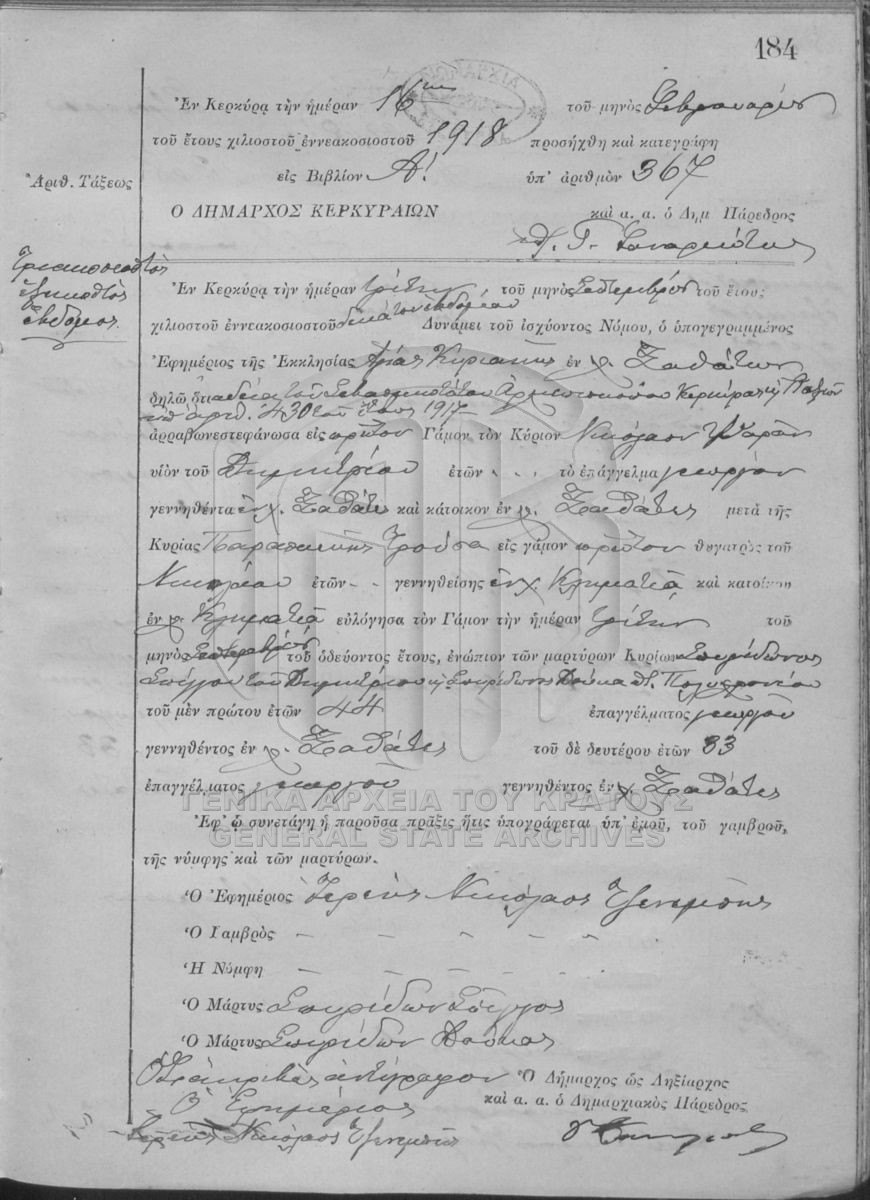 184
Ἐν Κερκύρᾳ τὴν ἡμέραν 16ην τοῦ μηνὸς Φεβρουαρίου
τοῦ ἔτους χιλιοστοῦ ἐννεακοσιοστοῦ 1918 προσήχθη καὶ κατεγράφη
Ἀριθ. Τάξεως εἰς Βιβλίον Α! ὑπ' ἀριθμὸν 367
Ο ΔΗΜΑΡΧΟΣ ΚΕΡΚΥΡΑΙΩΝ καὶ α. α. ὁ Δημ Πάρεδρος
Τριακοσιοστὸς
ἑξηκοστὸς
ἕβδομος.
Ἐν Κερκύρᾳ τὴν ἡμέραν τρίτην τοῦ μηνὸς Σεπτεμβρίου τοῦ ἔτους
χιλιοστοῦ ἐννεακοσιοστοῦ δεκάτου ἑβδόμου Δυνάμει τοῦ ἰσχύοντος Νόμου, ὁ ὑπογεγραμμένος
Ἐφημέριος τῆς Ἐκκλησίας Ἁγίας Κυριακῆς ἐν χ. Ξαθάτων
δηλῶ ὅτι ἀδείᾳ τοῦ Σεβασμιωτάτου Ἀρχιεπισκόπου Κερκύρας κ Παξῶν
ὑπ' ἀριθ. 430 τοῦ ἔτους 1917
ἀρραβωνεστεφάνωσα εἰς πρῶτον Γάμον τὸν Κύριον Νικόλαον Ψαρᾶν
υἱὸν τοῦ Δημητρίου ἐτῶν - - - τὸ ἐπάγγελμα γεωργὸν
γεννηθέντα ἐν χ. Ξαθάτες καὶ κάτοικον ἐν χ. Ξαθάτες μετὰ τῆς
Κυρίας Παρασκευῆς Τρούσα εἰς γάμον πρῶτον θυγατρὸς τοῦ
Νικολάου ἐτῶν - - γεννηθείσης ἐν χ. Κληματιᾷ καὶ κατοίκου
ἐν χ. Κληματιᾷ εὐλόγησα τὸν Γάμον τὴν ἡμέραν τρίτην τοῦ
μηνὸς Σεπτεμβρίου τοῦ ὁδεύοντος ἔτους, ἐνώπιον τῶν μαρτύρων Κυρίων Σπυρίδωνος
τοῦ Δημητρίου κ Σπυρίδωνος Δούκα Πολυχρονίου
τοῦ μὲν πρώτου ἐτῶν 44 ἐπαγγέλματος γεωργοῦ
γεννηθέντος ἐν χ. Ξαθάτες τοῦ δὲ δευτέρου ἐτῶν 33
ἐπαγγέλματος γεωργοῦ γεννηθέντος ἐν χ. Ξαθάτες
ΓΕΝΙΚΑ ΑΡΧΕΙΑ ΤΟΥ ΚΡΑΤΟΥΣ
Ἐφ' ᾧ συνετάγη ἡ παροῦσα πρᾶξις ἥτις ὑπογράφεται ὑπ' ἐμοῦ, τοῦ γαμβροῦ,
GENERAL STATE ARCHIVES
τῆς νύμφης καὶ τῶν μαρτύρων.
Ὁ Ἐφημέριος Ἱερεὺς Νικόλαος
Ὁ Γαμβρὸς - - - - -
Ἡ Νύμφη - - - - -
Ὁ Μάρτυς Σπυρίδων
Ὁ Μάρτυς Σπυρίδων Δούκας
ἀκριβὲς ἀντίγραφον Ὁ Δήμαρχος ὡς Ληξίαρχος
Ὁ Ἐφημέριος καὶ α. α. ὁ Δημαρχιακὸς Πάρεδρος
Ἱερεὺς Νικόλαος